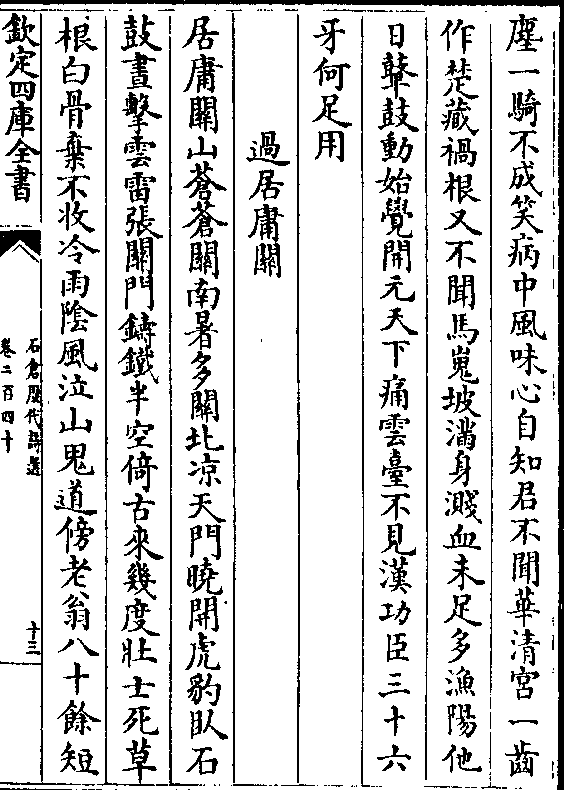 塵一騎不成笑病中風味心自知君不聞華清宮一齒
作楚藏禍根又不聞馬嵬坡滿身濺血未足多漁陽他
日鼙鼓動始覺開元天下痛雲臺不見漢功臣三十六
牙何足用
過居庸關
居庸關山蒼蒼關南暑多關北凉天門曉開虎豹臥石
鼓晝擊雲雷張關門鑄鐵半空倚古來幾度壯士死草
根白骨棄不收冷雨陰風泣山鬼道傍老翁八十餘短
欽定四庫全書
石倉歷代詩選
卷二百四十
十三